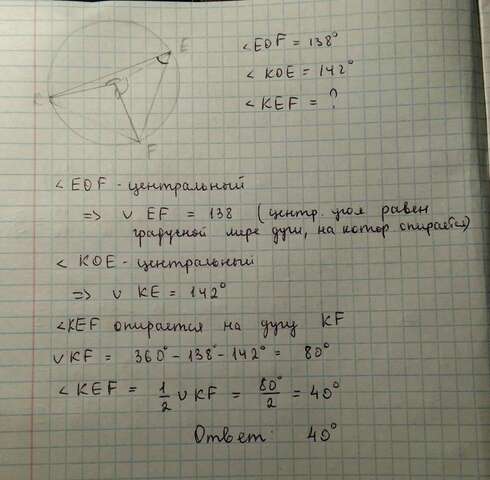 E
K
F
<EOF = 138°
< KOE = 142°
< KEF = ?
< EOF - центральный
=> ∪ EF = 138 (центр. угол равен
градусной мере дуги, на котор опирается)
< KOE - центральный
=> ∪ KE = 142°
<KEF опирается на дугу KF
∪KF = 360° - 138° - 142° = 80°
< KEF = 1/2 ∪ KF = 80°/2 = 40°
Ответ: 40°